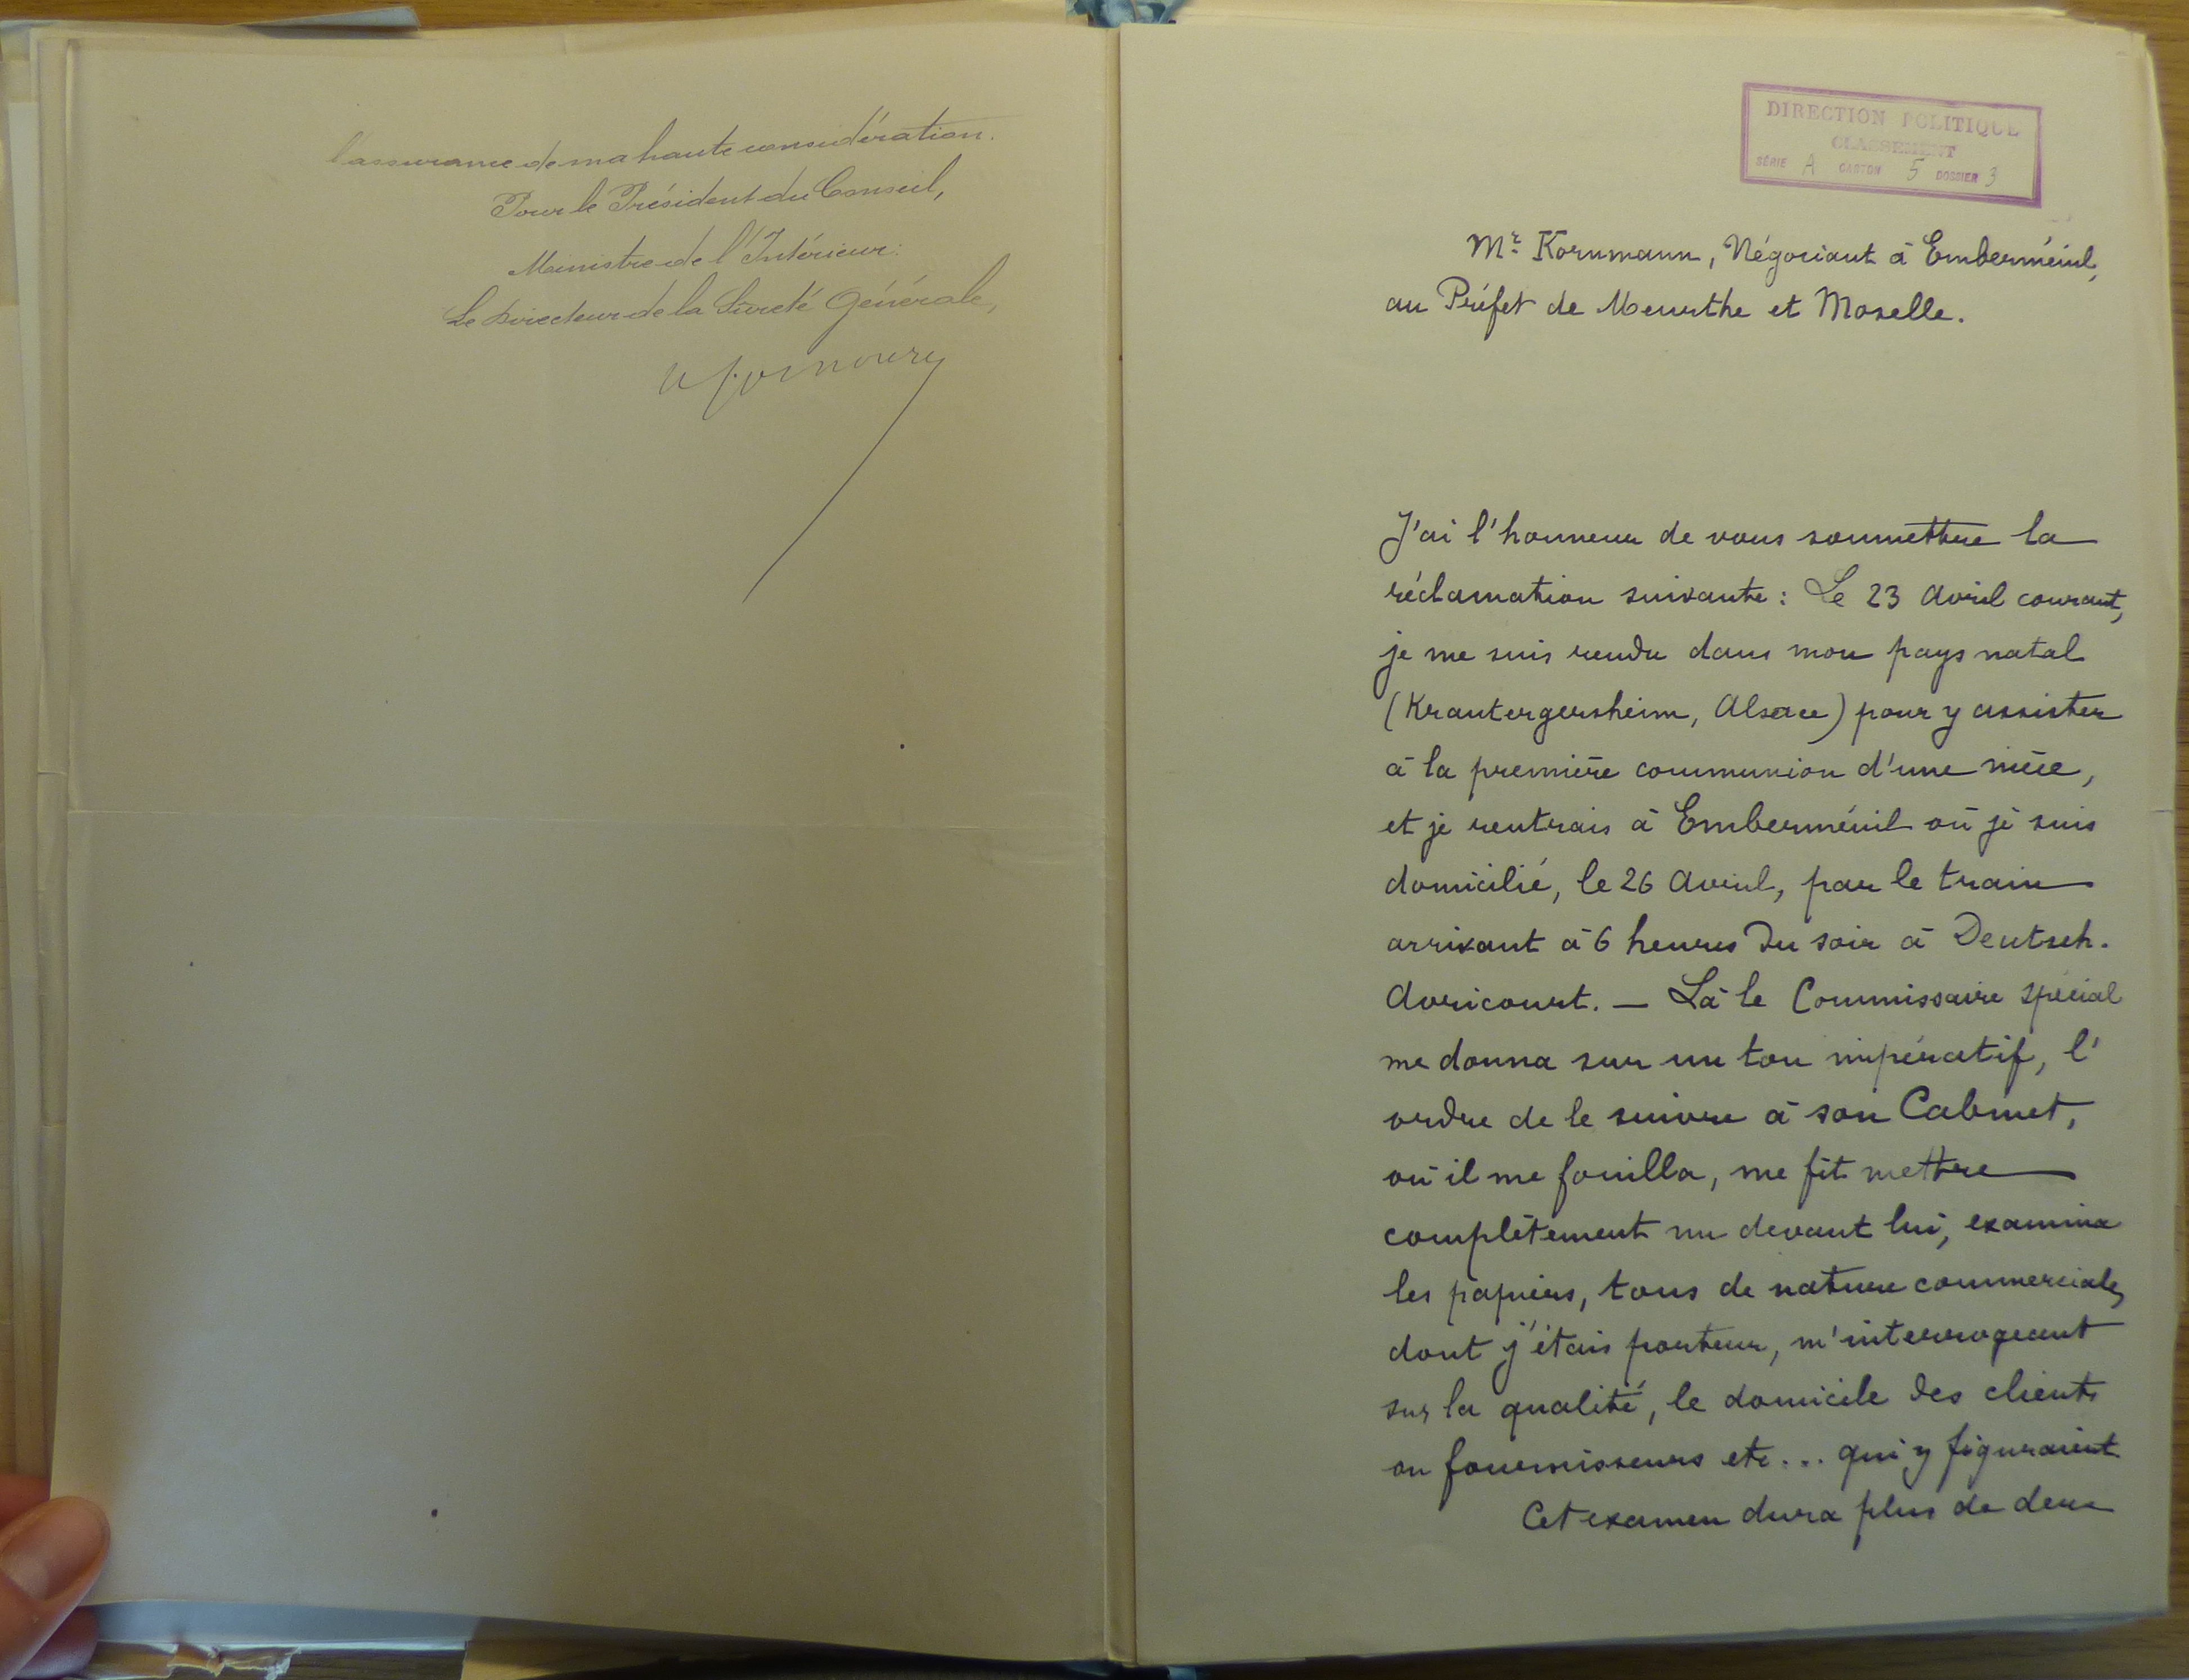 l'assurance de ma haute considération.
Pour le Président du Conseil,
Ministre de l'Intérieur:
Le Directeur de la Sûreté Générale,
DIRECTION POLITIQUE
CLASSEMENT
SÉRIE A CARTON 5 DOSSIER 3
Mr. Kornmann, Négociant à Emberménil,
au Préfet de Meurthe et Moselle.
J'ai l'honneur de vous soumettre la
réclamation suivante: Le 23 Avril courant,
je me suis rendu dans mon pays natal
(Krautergersheim, Alsace) pour y assister
à la première communion d'une nièce,
et je rentrais à Emberménil où je suis
domicilié, le 26 Avril, par le train
arrivant à 6 heures du soir à Deutsch.
Avricourt. — Là le Commissaire spécial
me donna sur un ton impératif, l'
ordre de le suivre à son Cabinet,
où il me fouilla, me fit mettre
complètement nu devant lui, examina
les papiers, tous de nature commerciale,
dont j'étais porteur, m'interrogeant
sur la qualité, le domicile des clients
ou fournisseurs etc... qui y figuraient
Cet examen dura plus de deux